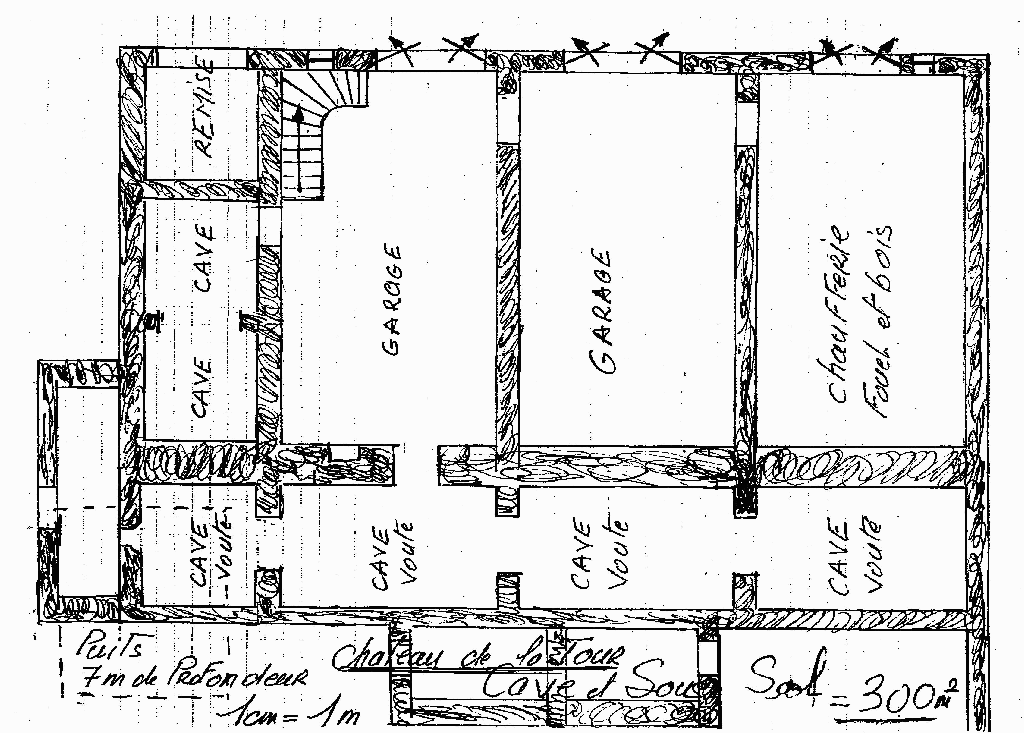 REMISE
CAVE
CAVE
GAROGE
GARAGE
chaufferie
Fouel et bois
CAVE
Vouter
CAVE
Voute
CAVE
Voute
CAVE
Voute
Puits
7m de Profondeur
1cm = 1m
Chateau de la Tour
Cave et Sous Sol = 300 m²